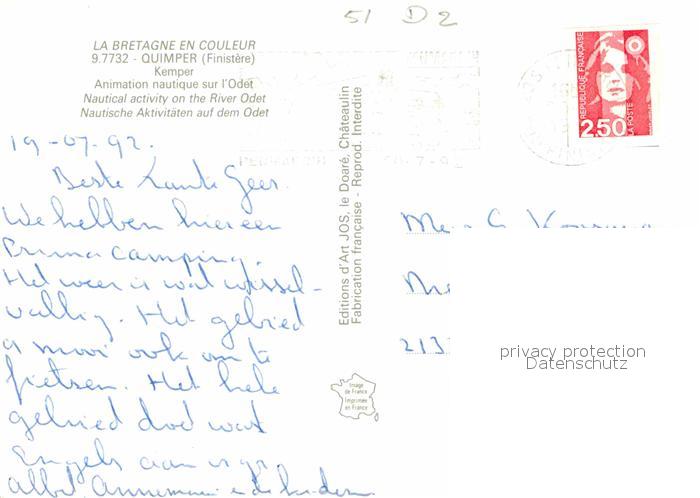 51 D2
LA BRETAGNE EN COULEUR
9.7732 - QUIMPER (Finistère)
Kemper
Animation nautique sur l'Odet
Nautical activity on the River Odet
Nautische Aktivitäten auf dem Odet
REPUBLIQUE FRANÇAISE
LA POSTE
2,50
19-07-92.
Beste Tante Geer.
We hebben hier een
Prima camping.
Het weer is wat wissel-
vallig. Het gebied
is mooi ook om te
fietsen. Het hele
gebied doet wat
Engels aan
Annemarie en de kinderen
Editions d'Art JOS, le Doaré, Châteaulin
Fabrication française - Reprod. Interdite
Image
de France
Imprimée
en France
213
privacy protection
Datenschutz